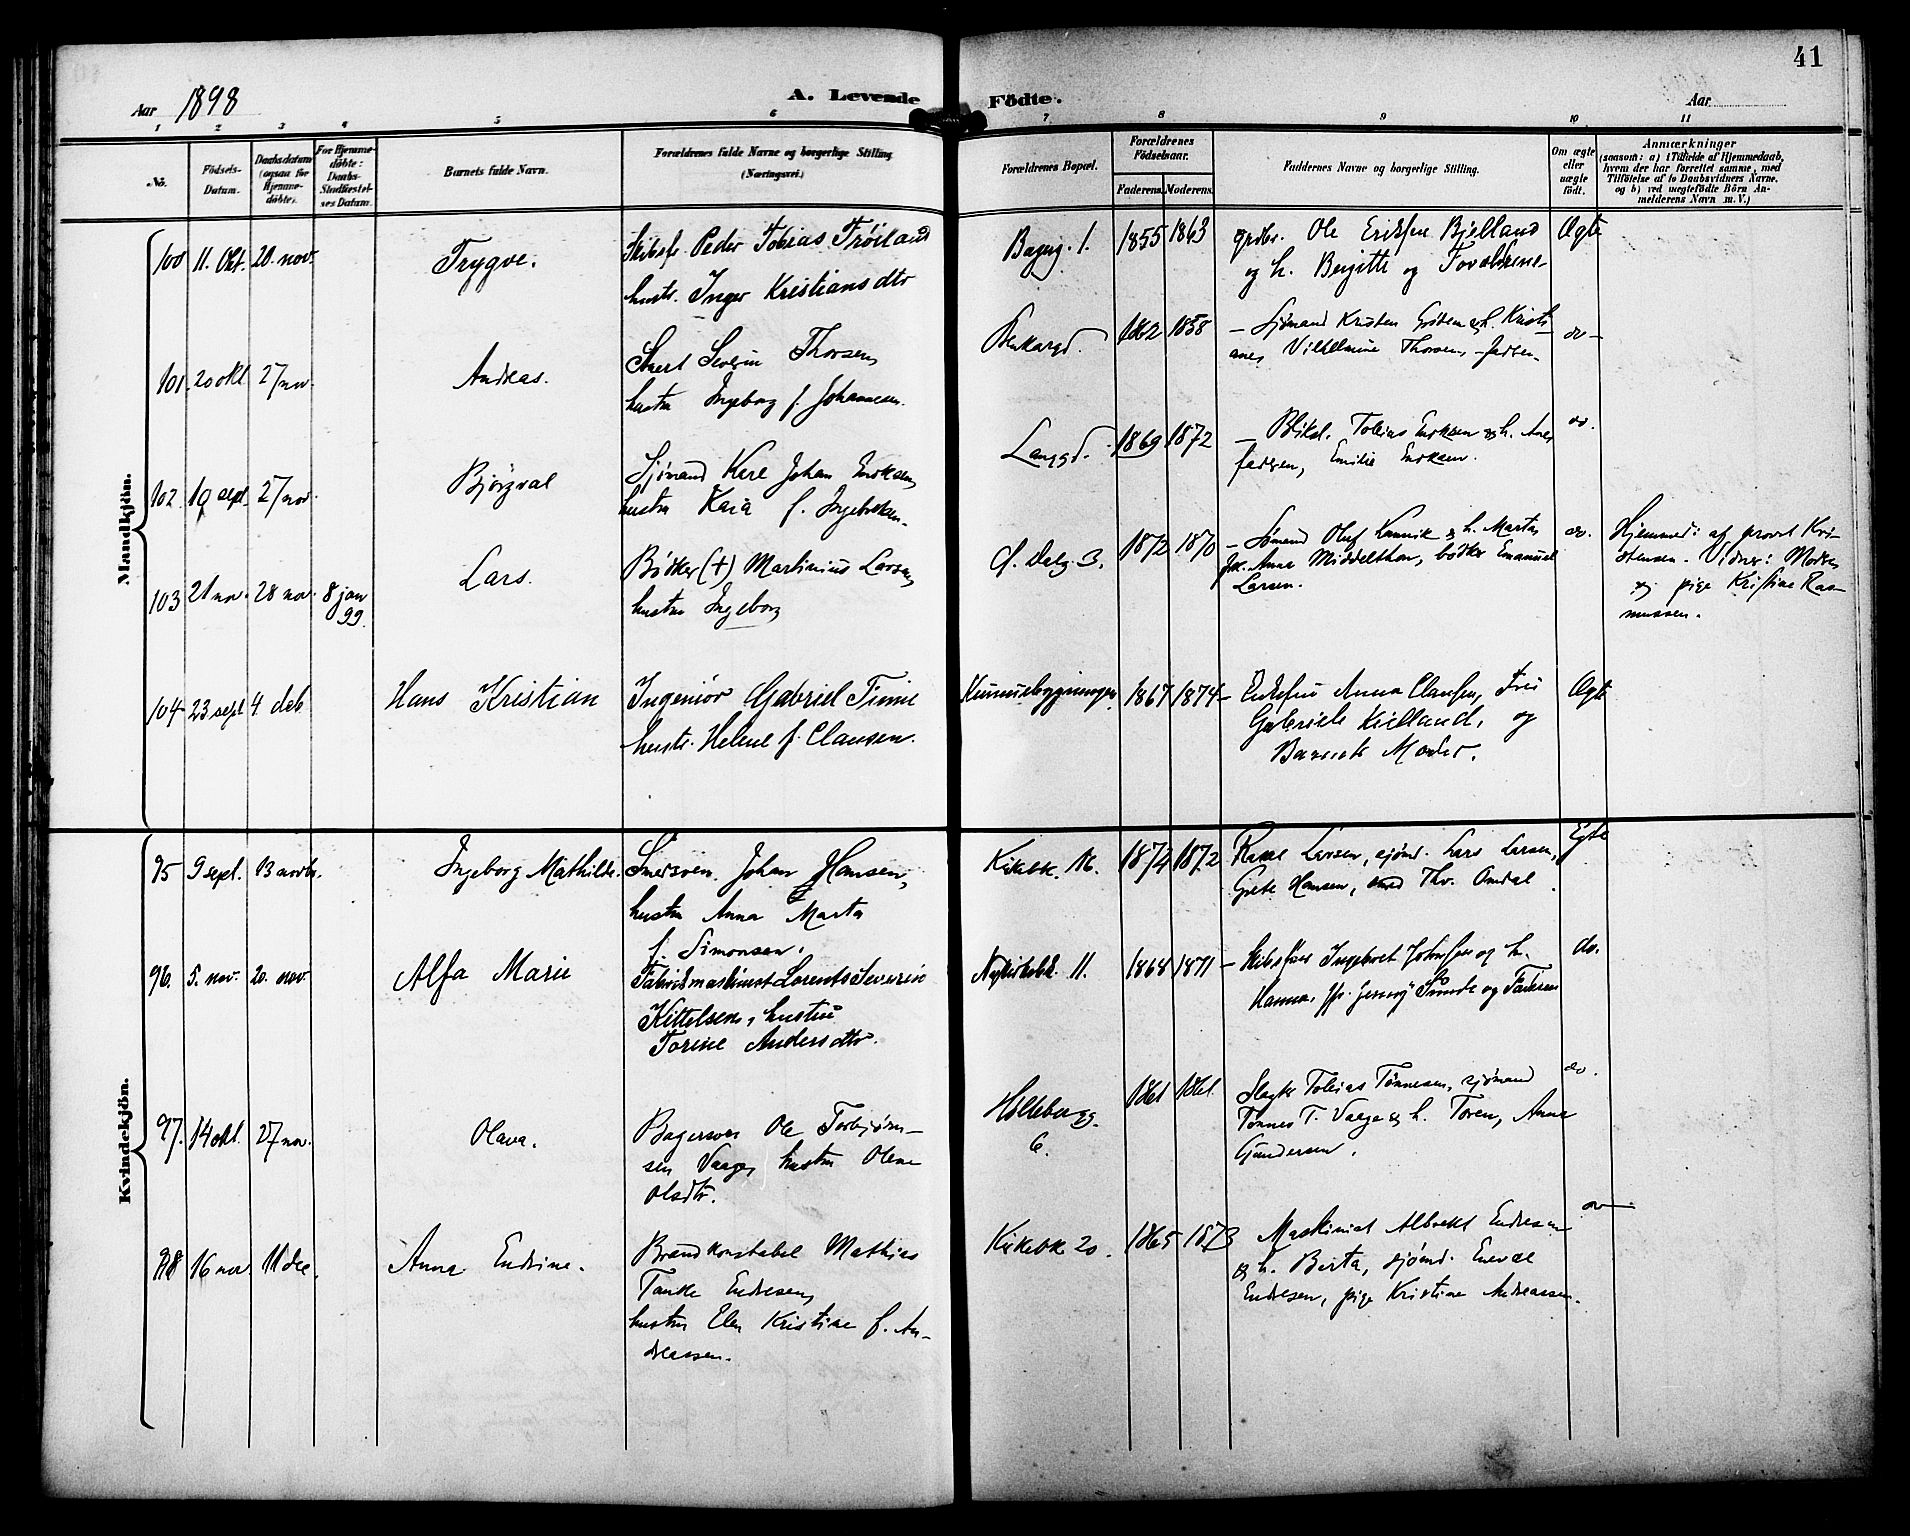 41
Aar 1898
A. Levende Födte.
Aar
1 2 3 4 5 6 7 8 9 10 11
No.
Födsels-
Datum.
Daabsdatum
(ogsaa for
Hjemme-
döbte).
For Hjemme-
döbte:
Daabs-
Stadfæstel-
ses Datum.
Barnets fulde Navn.
Forældrenes fulde Navne og borgerlige Stilling
(Næringsvei.)
Forældrenes Bopæl.
Forældrenes
Födselsaar.
Faderens. Moderens.
Faddernes Navne og borgerlige Stilling.
Om ægte
eller
uægte
födt.
Anmærkninger
(saasom: a) i Tilfælde af Hjemmedaab,
hvem der har forrettet samme, med
Tilföielse af to Daabsvidners Navne.
og b) ved uægtefödte Börn An-
melderens Navn m. V.)
Mandkjön.
100 11. Okt. 20 nov. Trygve. Skibsf. Peder Tobias Trøiland
hustr. Inger Kristiansdtr
1. 1855 1863 Ole Eriksen Bjelland
og h. Bergitte og Forældrene
Ægte
101. 20 okt 27 nov. Andreas. Severin Thorsen,
hustru Ingeborg f. Johannesen.
1862 1858 – Sjömand Kristen h. Kristi
ane, Vilhelmine Thorsen, faderen
do –
102. 19 sept. 27 nov. Bjørgval Sjömand Johan Eriksen,
hustru Kaia f. Ingebretsen.
Langgd. 1869 1872 – Tobias Eriksen og h. Ane,
faderen, Emilie Eriksen.
do.
103 21 nov. 28 nov. 8 jan
99.
Lars. Bödker (+) Martinius Larsen,
hustru Ingeborg
3. 1872 1870 – Sömand Oluf og h. Marta,
frk. Anna Middelthon, bödker Emanuel
Larsen.
do. Hjemmed: af provst Kri-
stensen. Vidner: Moder
og pige Kristine Ras-
mussen.
104 23 sept 4 deb Hans Kristian Ingeniör Gabriel Tinnie
hustr. Helene f. Clausen.
1867 1874 – Enkefru Anna Clausen, Frü
Gabriele Kielland, og
Barnets Moder.
Ægte
Kvindekjön.
95 9 sept. 13 novbr. Ingeborg Mathilde. Smedsven Johan Hansen,
hustru Anna Marta
f. Simonsen.
Kirkebk. 16. 1874 1872 – Larsen, sjömd. Lars Larsen,
Grete Hansen, Thv. Omdal
Egte
96. 5. nov. 20. nov. Alfa Marie Fabrikmaskinist Lorents Severin
Kittelsen, hustru
Torine Andersdtr.
Nykirkebk. 11. 1868 1871 – Skibsfører Ingebret Johnsen og h.
Hanna, Jenny Sunde og Faderen
do.
97. 14 okt. 27 nov. Olava. Bagersven Ole Torbjørn-
sen Vaage, hustru Olene
Olsdtr.
Holeberg.
6.
1861 1861. Tobias Tönnesen, sjömand
Tönnes T. Vaage og h. Toren, Anna
Gundersen.
do.
98 16 nov 11 dec. Anna Endrine. Brandkonstabel Mathias
Tanke Endresen,
hustru Elen Kristine f. An-
dreassen.
Kirkebk 20. 1865 1873 Maskinist Albrekt Endresen
og h. Berta, sjömd. Eneval
Endresen, pige Kristine Andreassen.
do –